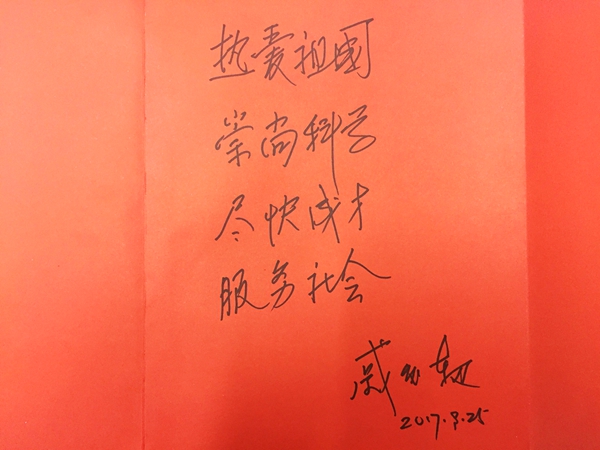 热爱祖国
崇尚科学
尽快成才
服务社会
戚发轫
2017.9.25